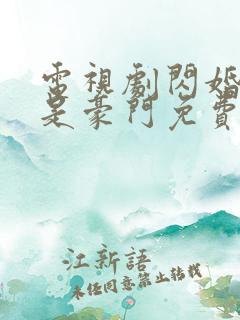 電視劇閃婚
是豪門免費
江新語
未經同意禁止轉載